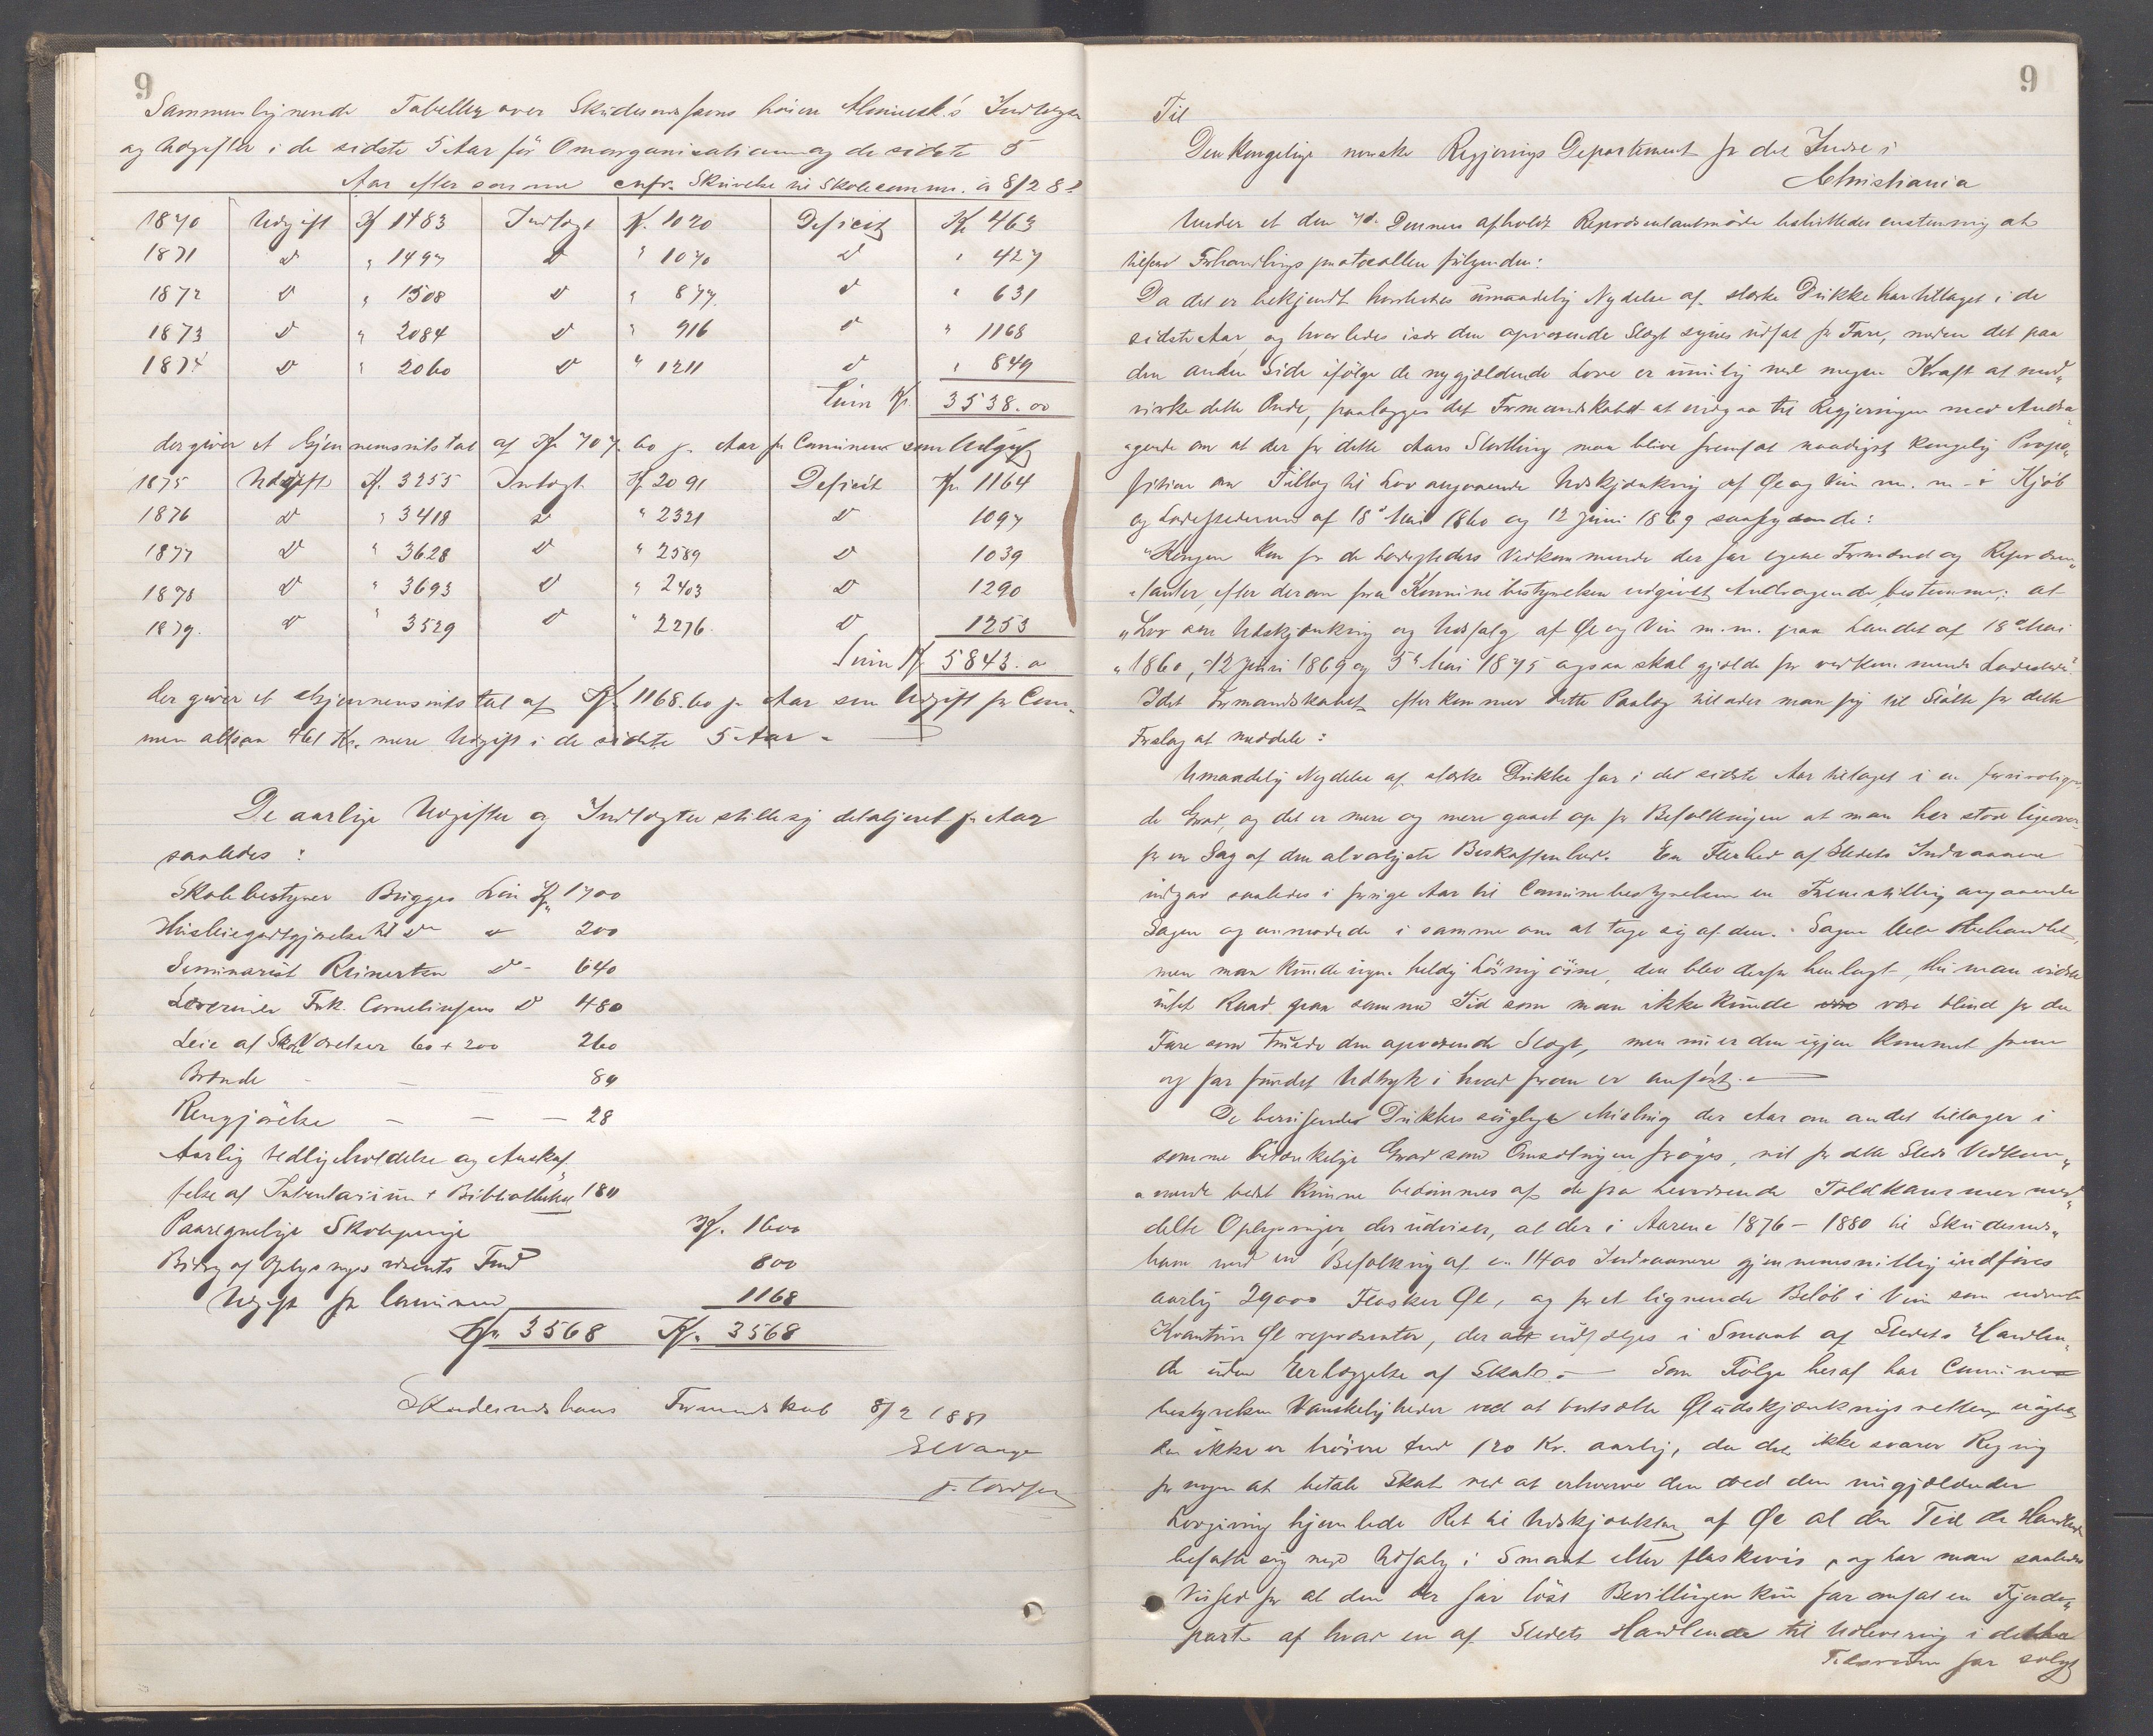 9
Sammenlignende Tabeller over Skudesneshavns høiere Almuesk.'s Indtægter
og Udgifter i de sidste 5 Aar før Omorganisationen og de sidste 5
Aar efter samme cnfr. Skrivelse til Skolecomm. a 8/2 81
1870 Udgift Kr 1483 Indtægt Kr. 1020 Deficit Kr 463
1871 d " 1497 d " 1070 d " 427
1872 d " 1508 d " 877 d " 631
1873 d " 2084 d " 916 d " 1168
1874 d " 2060 d " 1211 d " 849
Sum Kr 3538.00
der giver et Gjennemsnitstal af Kr 707.60 pr. Aar for Communen som Udgift
1875 Udgift Kr. 3255 Indtægt Kr 2091 Deficit Kr 1164
1876 d " 3418 d " 2321 d 1097
1877 d " 3628 d " 2589 d 1039
1878 d " 3693 d " 2403 d 1290
1879. d " 3529 d " 2276. d 1253
Sum Kr 5843.0
der giver et Gjennemsnitstal af Kr 1168.60 pr Aar som Udgift for Com-
munen altsaa 461 Kr. mere Udgift i de sidste 5 Aar.
De aarlige Udgifter og Indtægter stille sig detaljeret pr Aar
saaledes:
Skolebestyrer Brigges Løn Kr 1700
Husleiegodtgjørelse til do " 200
Seminarist Reinertsen d - 640
Lærerinde Frk. Corneliussens d 480
Leie af Skoleværelser 60 + 200 260
Brænde - - 80
Rengjørelse - - - 28
Aarlig Vedligeholdelse og Anskaf-
felse af Inventarium + Bibliotheket 180
Paaregnelige Skolepenge Kr. 1600
Bidrag af Oplysningsvæsenets Fond 800
Udgift for Communen 1168
Kr. 3568 Kr. 3568
Skudesneshavns Formandskab 8/2 1881
9
Til
Den kongelige norske Regjerings Departement for det Indre i
Christiania
Under et den 7de Dennes afholdt Repræsentantmøde besluttedes enstemmig at
tilføre Forhandlingsprotocollen følgende:
Da det er bekjendt hvorledes umaadelig Nydelse af stærke Drikke har tiltaget i de
sidste Aar, og hvorledes især den opvoxende Slægt synes udsat for Fare, medens det paa
den anden Side ifølge de nugjældende Love er umulig med nogen Kraft at mod-
virke dette Onde, paalægges det Formandskabet at indgaa til Regjeringen med Andra-
gende om at der for dette Aars Storthing maa blive fremsat naadigst kongelig Propo-
sition om Tillæg til Lov angaaende Udskjænkning af Øl og Vin m. m. i Kjøb
og Ladestederne af 18de Mai 1860 og 12 Juni 1869 saalydende:
"Kongen kan for de Ladesteders Vedkommende der har egne Formænd og Repræsen-
"tanter, efter derom fra Kommunebestyrelsen indgivet Andragende, bestemme: at
"Lov om Udskjænkning og Udsalg af Øl og Vin m.m. paa Landet af 18de Mai
"1860, 12 Juni 1869 og 3de Mai 1875 ogsaa skal gjælde for vedkommende Ladested."
Idet Formandskabet efterkommer dette Paalæg tillader man sig til Støtte for dette
Forslag at meddele:
Umaadelig Nydelse af stærke Drikke har i det sidste Aar tiltaget i en foruroligen-
de Grad, og det er mere og mere gaaet op for Befolkningen at man her staar ligeover-
for en Sag af den alvorligste Beskaffenhed. En Flerhed af Stedets Indvaanere
indgav saaledes i forrige Aar til Communebestyrelsen en Fremstilling angaaende
Sagen og anmodede i samme om at tage sig af den. Sagen blev behandlet,
men man kunde ingen heldig Løsning øine, den blev derfor henlagt, thi man vidste
intet Raad paa samme Tid som man ikke kunde være blind for den
Fare som truede den opvoxende Slægt, men nu er den igjen kommet frem
og har fundet Udtryk i hvad foran er anført.
De berusende Drikkes søgelige Misbrug der Aar om andet tiltager i
samme betænkelige Grad som Omsætningen forøges, vil for dette Steds Vedkom-
mende bedst kunne bedømmes af de fra herværende Toldkammer med-
delte Oplysninger, der udviser, at der i Aarene 1876 - 1880 til Skudesnes-
havn med en Befolkning af c. 1400 Indvaanere gjennemsnitlig indføres
aarlig 29000 Flasker Øl, og for et lignende Beløb i Vin som nævnte
Kvantum Øl repræsenter, der alt udsælges i Smaat af Stedets Handlen-
de uden Erlæggelse af Skat. — Som Følge heraf har Commune
bestyrelsen Vanskeligheder ved at bortsætte Øludskjænkningsretten uagtet
den ikke er høiere end 120 Kr. aarlig, da det ikke svarer Regning
for nogen at betale Skat ved at erhverve den ved den nugjældende
Lovgivning hjemlede Ret til Udskjænkning af Øl al den Tid de Handlende
befatte sig med Udsalg i Smaat eller flaskevis, og har man saaledes
Vished for at den der har løst Bevillingen kun har omsat en Fjerde-
part af hvad en af Stedets Handlende til Udlevering i dette
Tidsrum har solgt